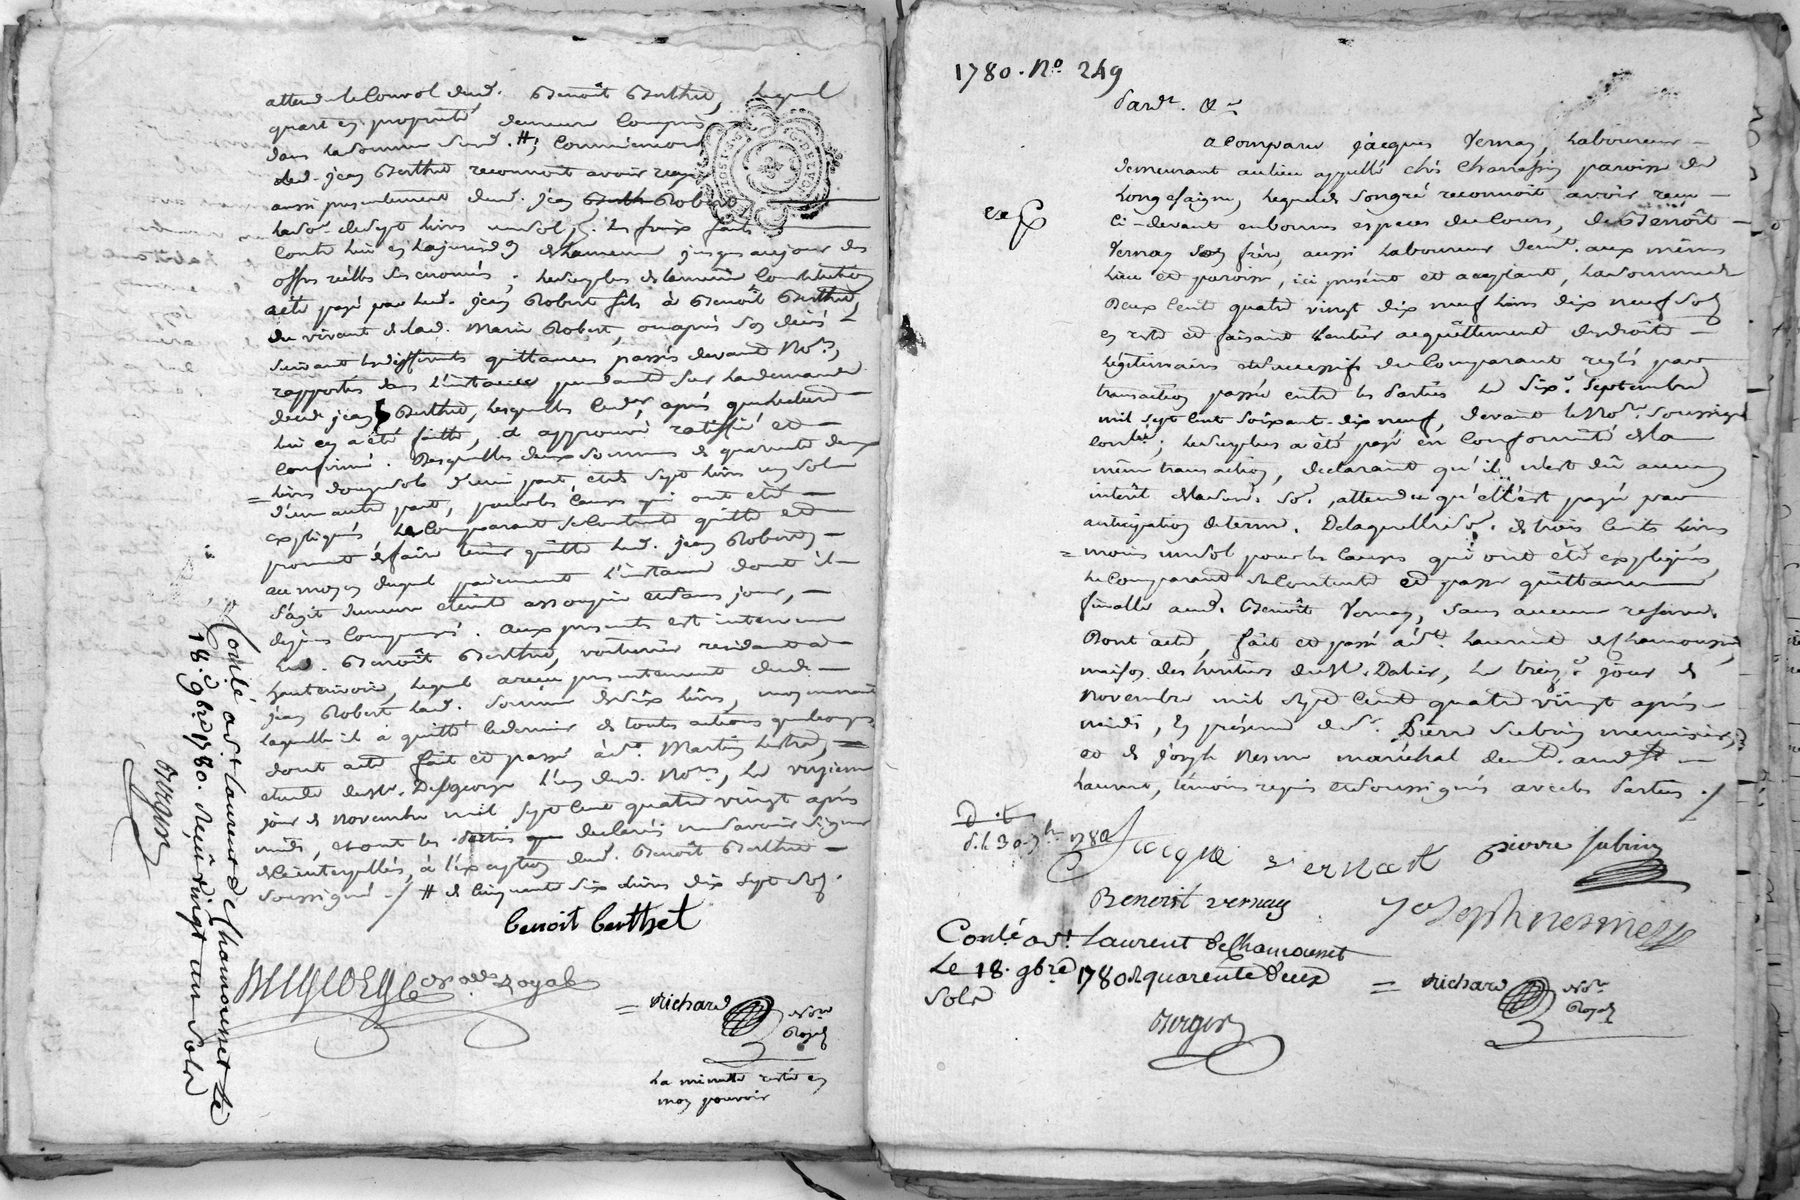 attend. le Convol dud. Benoît Berthet, lequel
quart en propriété demeure Compris
dans la somme susd. #; Comm
led. jean Berthet reconnoit avoir reçu
aussi presentement dud. jean Robert
la so.e de sept livres un sol, les frais faits
Contre lui en la jurisd.on de jusques au jour des
offres réelles sus énoncés; le surplus de la même Constitution
a été payé par led. jean Robert fils à Benoît Berthet,
du vivant de lad. Marie Robert, ou après son décès
suivant les différentes quittances passées devant No.res,
rapportés dans l'instance pendante sur la demande
dud. jean Berthet, lesquelles led. après que lecture
lui en a été faitte, a approuvé ratiffié et
Confirmé. Desquelles deux sommes de quarante deux
livres d'une part, et de sept livres un sol
d'une autre part, pour les Causes qui ont été
expliqués, le Comparant se Contente quitte et
promet de faire tenir quitte led. jean Robert,
au moyen duquel paiement l'instance dont il
s'agit demeure éteinte assoupie et sans jour,
dépens Compensés. Aux presentes est intervenu
led. Benoît Berthet, voiturier residant à
hauterivoire, lequel a reçu presentement dud.
jean Robert lad. somme de six livres, moyennant
laquelle il a quitté ce dernier de toutes actions quelconques
dont acte fait et passé à St. Martin Lestra,
étude de Me. Desgeorge l'un desd. No.res, le vingtieme
jour de novembre mil sept cent quatre vingt après
midi, et ont les declarés ne savoir signer
de ce interpellés, à l'exception dud. Benoît Berthet
soussigné ./. # de Cinquante six livres dix sept sols.
benoit berthet
Desgeorge no.re Royal
= Richard No.re
Royal
La minutte restée en
mon pouvoir
Conlé a St Laurent de Chamousset le
18. 9bre 1780. Reçu vingt un sols
Berger
1780. No. 249
Pard.t &a
a Comparu jacques Vernay, Laboureur
demeurant au lieu appellé chés Charrassin paroisse de
Longesaigne, lequel de son gré reconnoit avoir reçu
Ci-devant en bonnes especes du Cours, de Benoît
Vernay son frère, aussi Laboureur dem.t aux mêmes
lieu et paroisse, ici présent et acceptant, la somme de
Deux Cent quatre vingt dix neuf livres dix neuf sols
en reste et faisant l'entier acquittement des droits
légitimaires et successifs du Comparant reglés par
transaction passée entre les Parties le six.e Septembre
mil sept Cent soixante-dix neuf, devant le No.re soussigné
Conlée; le surplus a été payé en Conformité de la
même transaction, déclarant qu'il n'est dû aucun
intérêt de la susd. so.e, attendu qu'elle est payée par
anticipation de terme. De laquelle so.e de trois Cents livres
= moins un sol pour les Causes qui ont été expliqués,
le Comparant se Contente et passe quittance
finalle aud. Benoît Vernay, sans aucune reserve.
Dont acte, fait et passé à St. Laurent de Chamousset,
maison des heritiers du Sr. Dalier, le treiz.e jour de
novembre mil sept Cent quatre vingt après
midi, En présence de Sr. Pierre Subrin menuisier,
et de Joseph Nesme maréchal dem.t aud. St
Laurent, témoins requis et soussignés avec les Parties ./.
d. t.
d. l. 30. 9b. 1780
Jacque Vernai pierre subrin
Benoist vernay Joseph nesme
Conlé a St. Laurent de Chamousset
Le 18. 9bre 1780 R quarente deux
Sols
Berger
= Richard No.re
Royal